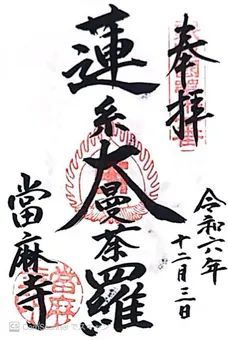 奉拝
蓮糸大曼荼羅
令和六年
十二月三日
當麻寺